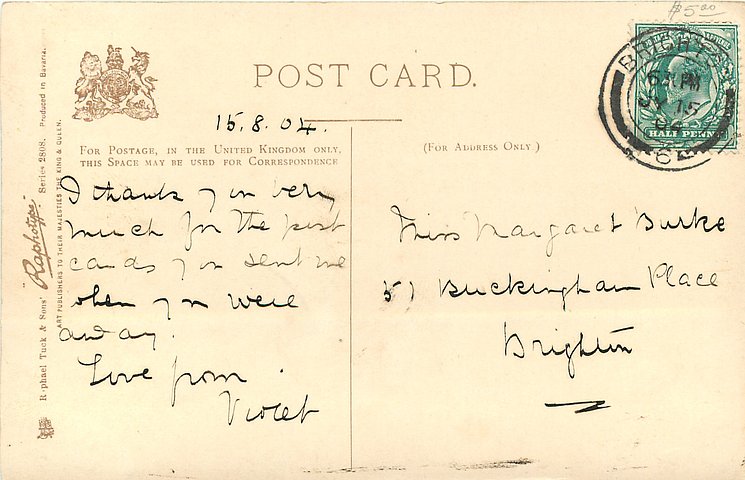 $5.00
POST CARD.
15.8.04.
FOR POSTAGE, IN THE UNITED KINGDOM ONLY,
THIS SPACE MAY BE USED FOR CORRESPONDENCE
(FOR ADDRESS ONLY.)
I thank you very
much for the post
cards you sent me
when you were
away.
Love from
Violet
Miss Margaret Burke
51 Buckingham Place
Brighton
BRIGHTON
6 30 PM
JY 15
04
62
HALF PENNY
Raphael Tuck & Sons' "Raphotype" Series 2808. Produced in Bavaria.
ART PUBLISHERS TO THEIR MAJESTIES THE KING & QUEEN.